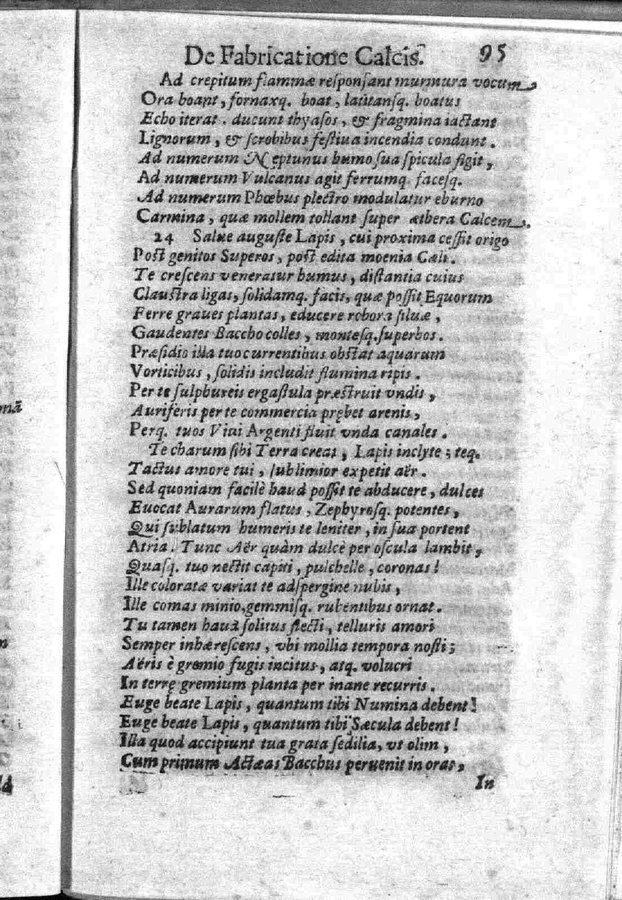 De Fabricatione Calcis. 95
Ad crepitum flammæ responsant murmura vocum,
Ora boant, fornaxq. boat, latitansq. boatus
Echo iterat. ducunt thyasos, & fragmina iactant
Lignorum, & scrobibus festiua incendia condunt.
Ad numerum Neptunus humo sua spicula figit,
Ad numerum Vulcanus agit ferrumq. facesq.
Ad numerum Phœbus plectro modulatur eburno
Carmina, quæ mollem tollant super æthera Calcem.
24 Salue auguste Lapis, cui proxima cessit origo
Post genitos Superos, post edita moenia Cæli.
Te crescens veneratur humus, distantia cuius
Claustra ligas, solidamq. facis, quæ possit Equorum
Ferre graues plantas, educere robora siluæ,
Gaudentes Baccho colles, montesq. superbos.
Præsidio illa tuo currentibus obstat aquarum
Vorticibus, solidis includit flumina ripis.
Per te sulphureis ergastula præstruit vndis,
Auriferis per te commercia prębet arenis,
Perq. tuos Viui Argenti fluit vnda canales.
Te charum sibi Terra creat, Lapis inclyte; teq.
Tactus amore tui, sublimior expetit aër.
Sed quoniam facilè haud possit te abducere, dulces
Euocat Aurarum flatus, Zephyrosq. potentes,
Qui sublatum humeris te leniter, in sua portent
Atria. Tunc Aër quàm dulcè per oscula lambit,
Quasq. tuo nectit capiti, pulchelle, coronas!
Ille coloratæ variat te adspergine nubis,
Ille comas minio, gemmisq. rubentibus ornat.
Tu tamen haud solitus flecti, telluris amori
Semper inhærescens, vbi mollia tempora nosti;
Aëris è gremio fugis incitus, atq. volucri
In terrę gremium planta per inane recurris.
Euge beate Lapis, quantum tibi Numina debent!
Euge beate Lapis, quantum tibi Sæcula debent!
Illa quod accipiunt tua grata sedilia, vt olim,
Cum primum Actæas Bacchus peruenit in oras,
In